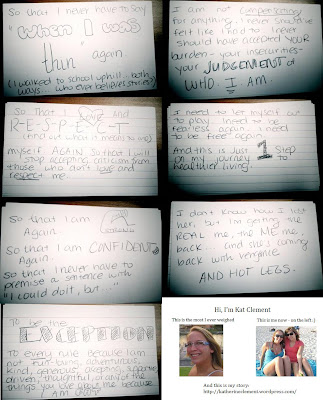 So that I never have to say
"when I was
thin" again
(I walked to school uphill... both
ways. who ever believes stories?)
I am not compensating
for anything. I never should've
felt like I had to. I never
should have accepted YOUR
burden - your insecurities -
your JUDGEMENT of
WHO I AM.
So that I LOVE and
R-E-S-P-E-C-T
(find out what it means to me)
myself AGAIN. So that I will
stop accepting criticism from
those who don't love and
respect me.
I need to let myself out
to play. I need to be
fearless again. I need
to be free again.
And this is just 1 step
on my journey to
healthier living.
So that I am
Again.
So that I am CONFIDENT
Again.
So that I never have to
premise a sentence with
"I could do it, but..."
I don't know how I lost
her, but I'm getting the
REAL me, the ME me,
back... and she's coming
back with vengence
AND HOT LEGS.
To be the
EXCEPTION
to every rule because I am
not just funny, adventurous,
kind, generous,
driven, thoughtful, or any of the
things you love about me because
I am
Hi, I'm Kat Clement
This is the most I ever weighed
This is me now - on the left :)
And this is my story:
http://katherineclement.wordpress.com/